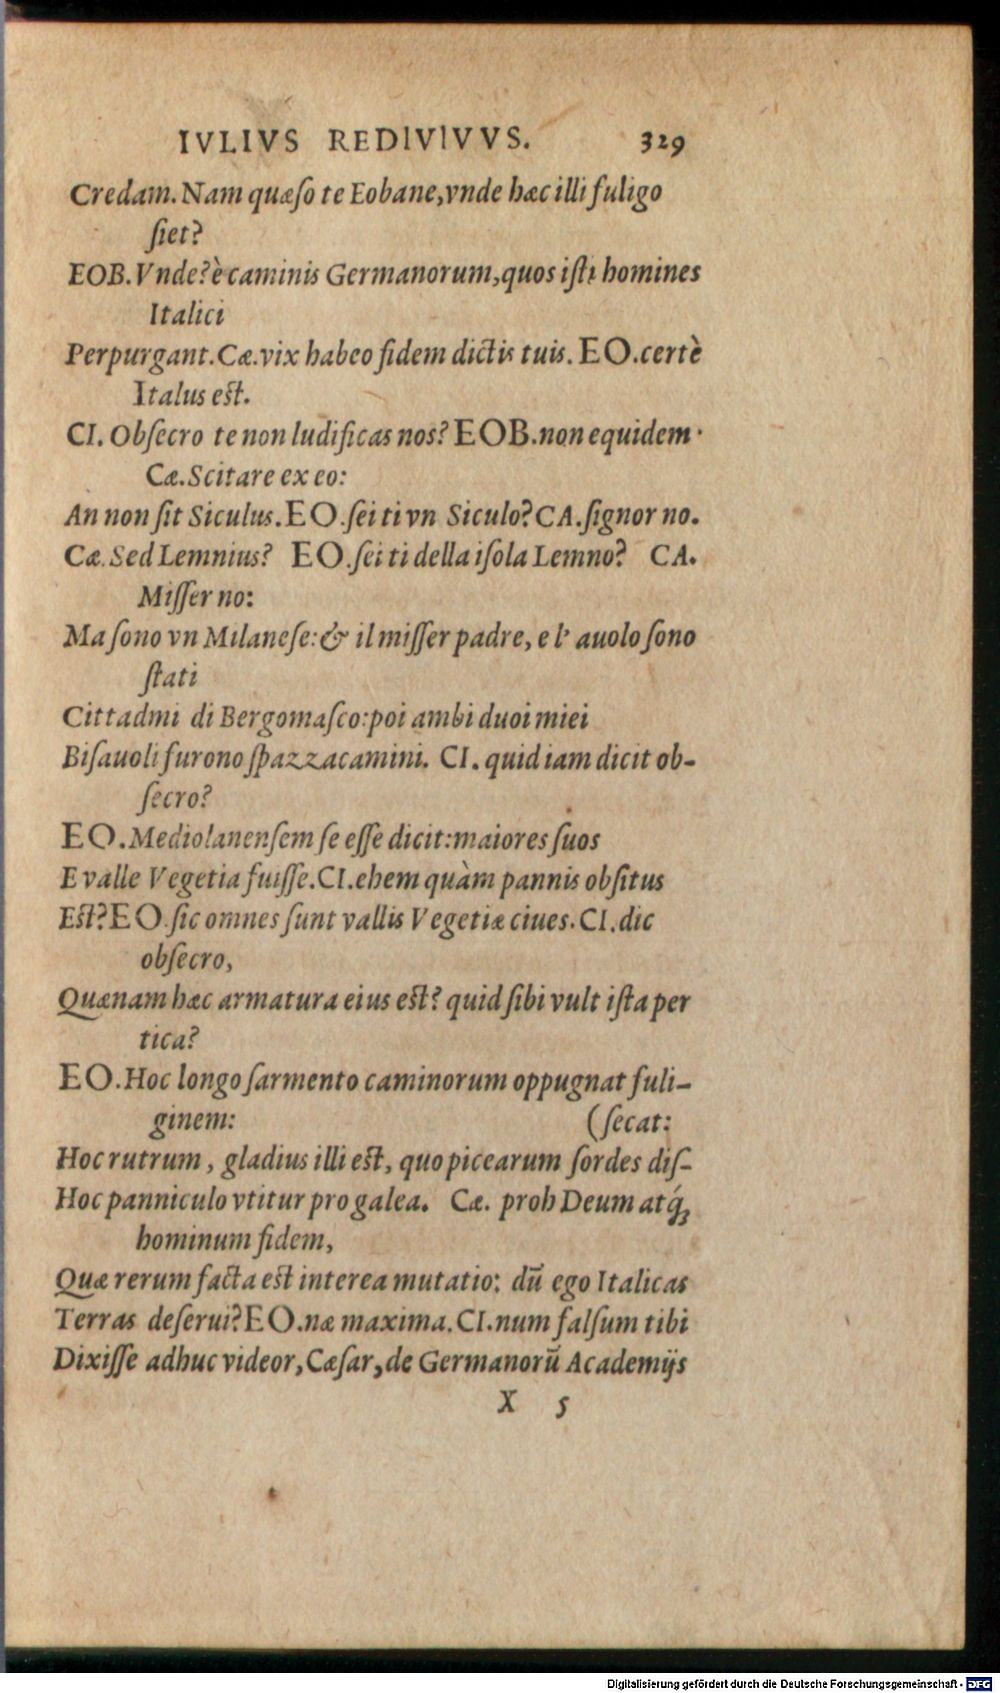 IVLIVS REDIVIVVS. 329
Credam. Nam quæſo te Eobane, vnde hæc illi fuligo
ſiet?
EOB. Vnde? è caminis Germanorum, quos iſti homines
Italici
Perpurgant. Cæ. vix habeo fidem dictis tuis. EO. certè
Italus est.
CI. Obſecro te non ludificas nos? EOB. non equidem.
Cæ. Scitare ex eo:
An non ſit Siculus. EO. ſei ti vn Siculo? CA. ſignor no.
Cæ. Sed Lemnius? EO. ſei ti della iſola Lemno? CA.
Miſſer no:
Ma ſono vn Milaneſe: & il miſſer padre, e l' auolo ſono
ſtati
Cittadmi di Bergomaſco: poi ambi duoi miei
Biſauoli furono ſpazzacamini. CI. quid iam dicit ob-
ſecro?
EO. Mediolanenſem ſe eſſe dicit: maiores ſuos
E valle Vegetia fuiſſe. CI. ehem quàm pannis obſitus
Est? EO. ſic omnes ſunt vallis Vegetiæ ciues. CI. dic
obſecro,
Quænam hæc armatura eius est? quid ſibi vult iſta per
tica?
EO. Hoc longo ſarmento caminorum oppugnat fuli-
ginem: (ſecat:
Hoc rutrum, gladius illi est, quo picearum ſordes diſ-
Hoc panniculo vtitur pro galea. Cæ. proh Deum atq́ꝫ
hominum fidem,
Quæ rerum facta est interea mutatio: dũ ego Italicas
Terras deſerui? EO. næ maxima. CI. num falſum tibi
Dixiſſe adhuc videor, Cæſar, de Germanorũ Academijs
X 5
Digitalisierung gefördert durch die Deutsche Forschungsgemeinschaft - DFG